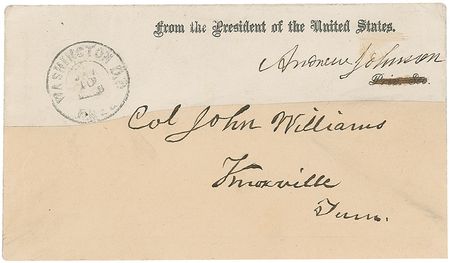 From the President of the United States.
Andrew Johnson
WASHINGTON D.C.
FREE
Col John Williams
Knoxville
Tenn.